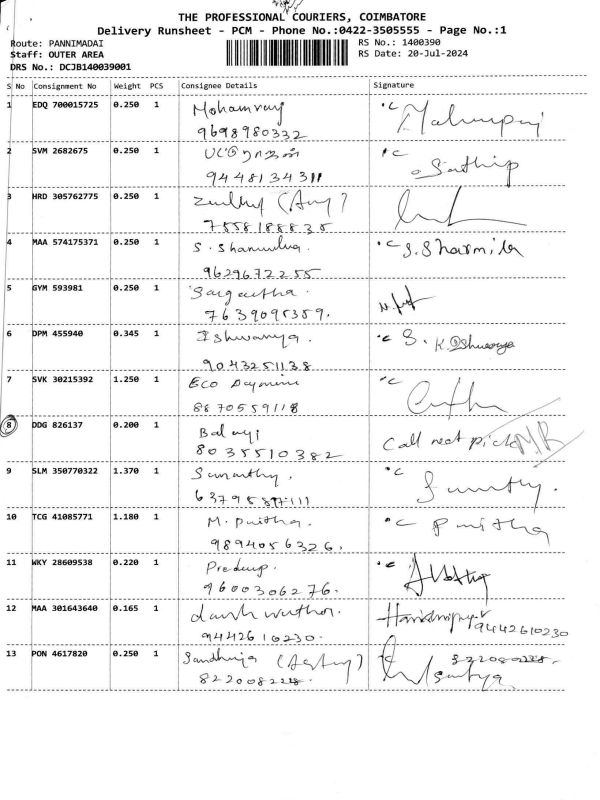 THE PROFESSIONAL COURIERS, COIMBATORE
Delivery Runsheet - PCM - Phone No.:0422-3505555 - Page No.:1
Route: PANNIMADAI
RS No.: 1400390
Staff: OUTER AREA
RS Date: 20-Jul-2024
DRS No.: DCJB140039001
S No Consignment No Weight PCS Consignee Details Signature
1 EDQ 700015725 0.250 1 Mohamraj °C
9698980332
2 SVM 2682675 0.250 1 °C Sathip
9448134311
3 HRD 305762775 0.250 1
7558188835
4 MAA 574175371 0.250 1 S. °C S. Sharmila
9629672255
5 GYM 593981 0.250 1
7639095359.
6 DPM 455940 0.345 1 Ishwarya. °C S. K.
9043251138
7 SVK 30215392 1.250 1 ECO °C
8870559118
8 DDG 826137 0.200 1 Balaji Call not pick
8035510382
9 SLM 350770322 1.370 1 Sumathy. °C
10 TCG 41085771 1.180 1 M. Pavitha. °C Pavitha
9894056326.
11 WKY 28609538 0.220 1 Predeep. °C
9600306276.
12 MAA 301643640 0.165 1
9442610230. 9442610230
13 PON 4617820 0.250 1 Sandhiya
8220082228. Sathya